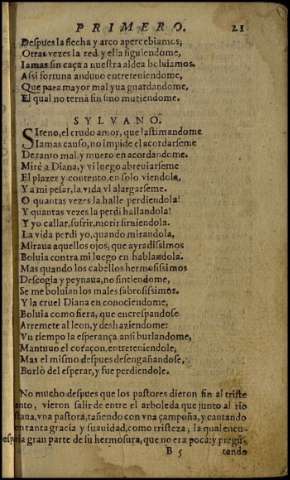 PRIMERO. 21
Despues la flecha y arco apercebiamos,
Otras vezes la red, y ella siguiendome,
Iamas sin caça a nuestra aldea boluiamos.
Assi fortuna anduuo entreteniendome,
Que para mayor mal yua guardandome,
El qual no terna fin sino muriendome.
SYLVANO.
Sireno, el crudo amor, que lastimandome
Iamas canso, no impide el acordarseme
De tanto mal, y muero en acordandome.
Mirè a Diana, y vi luego abreuiarseme
El plazer y contento, en solo viendola,
Y a mi pesar, la vida vi alargarseme.
O quantas vezes la halle perdiendola!
Y quantas vezes la perdi hallandola!
Y yo callar, sufrir, morir siruiendola.
La vida perdi yo, quando mirandola,
Miraua aquellos ojos, que ayradissimos
Boluia contra mi luego en hablandola.
Mas quando los cabellos hermosissimos
Descogia y peynaua, no sintiendome,
Se me boluian los males sabrosissimos.
Y la cruel Diana en conociendome,
Boluia como fiera, que encrespandose
Arremete al leon, y deshaziendome:
Vn tiempo la esperança ansi burlandome,
Mantuuo el coraçon, entreteniendole,
Mas el mismo despues desengañandose,
Burlò del esperar, y fue perdiendole.
No mucho despues que los pastores dieron fin al triste
canto, vieron salir de entre el arboleda que junto al rio
estaua, vna pastora, tañendo con vna çampoña, y cantando
con tanta gracia y suauidad, como tristeza, la qual encu-
gran parte de su hermosura, que no era poca: y pregũ-
B 5 tando